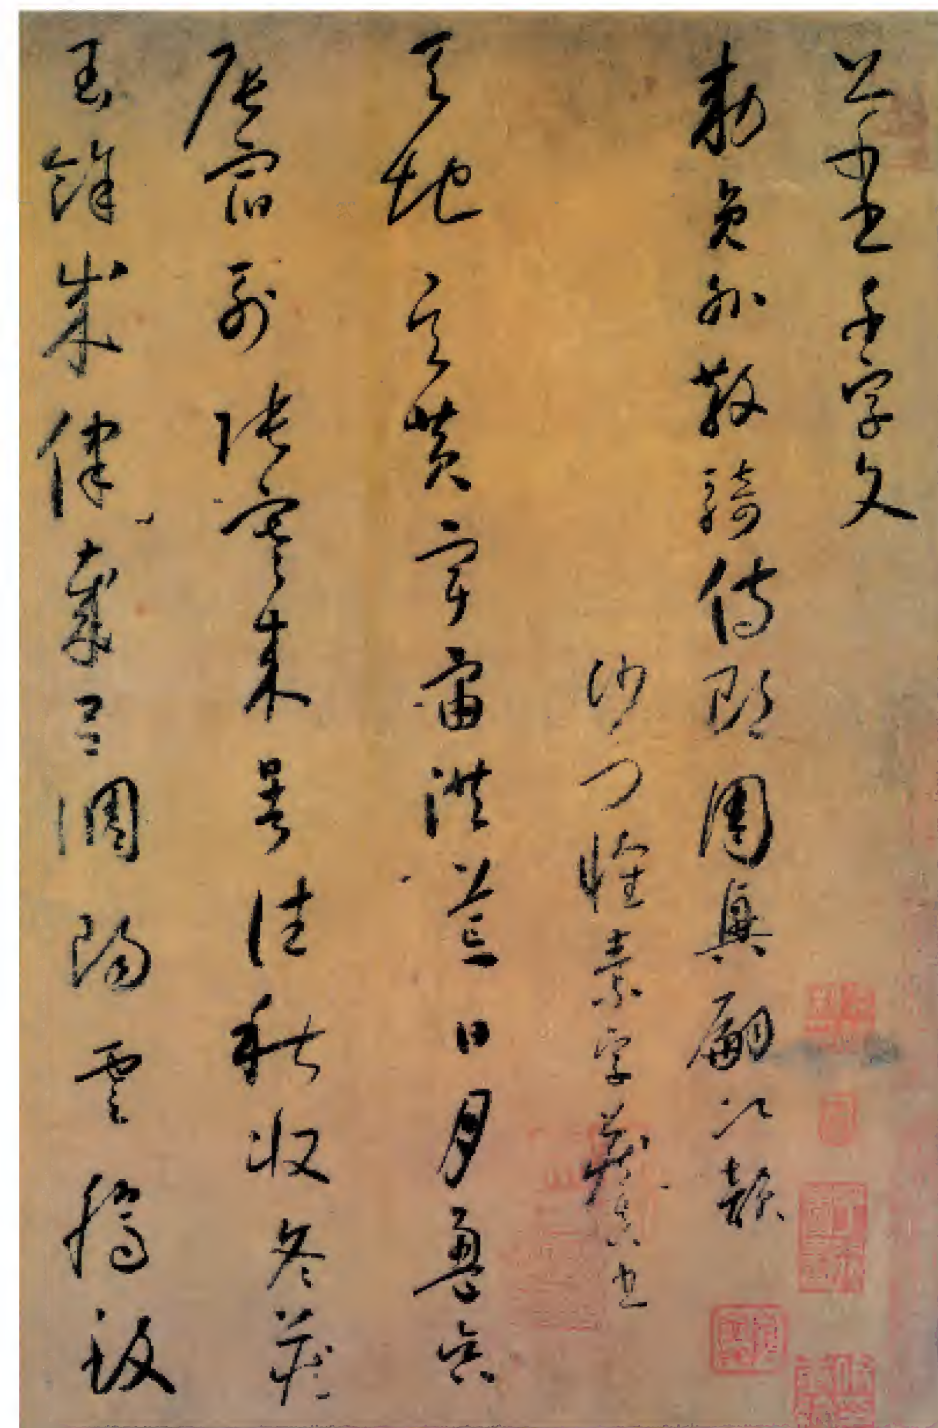 草書千字文
勅員外散騎侍郎周興嗣次韻
沙门懷素字藏真書
天地玄黃宇宙洪荒日月盈昃
辰宿列張寒來暑往秋收冬藏
閏餘成律歲呂調陽雲騰致